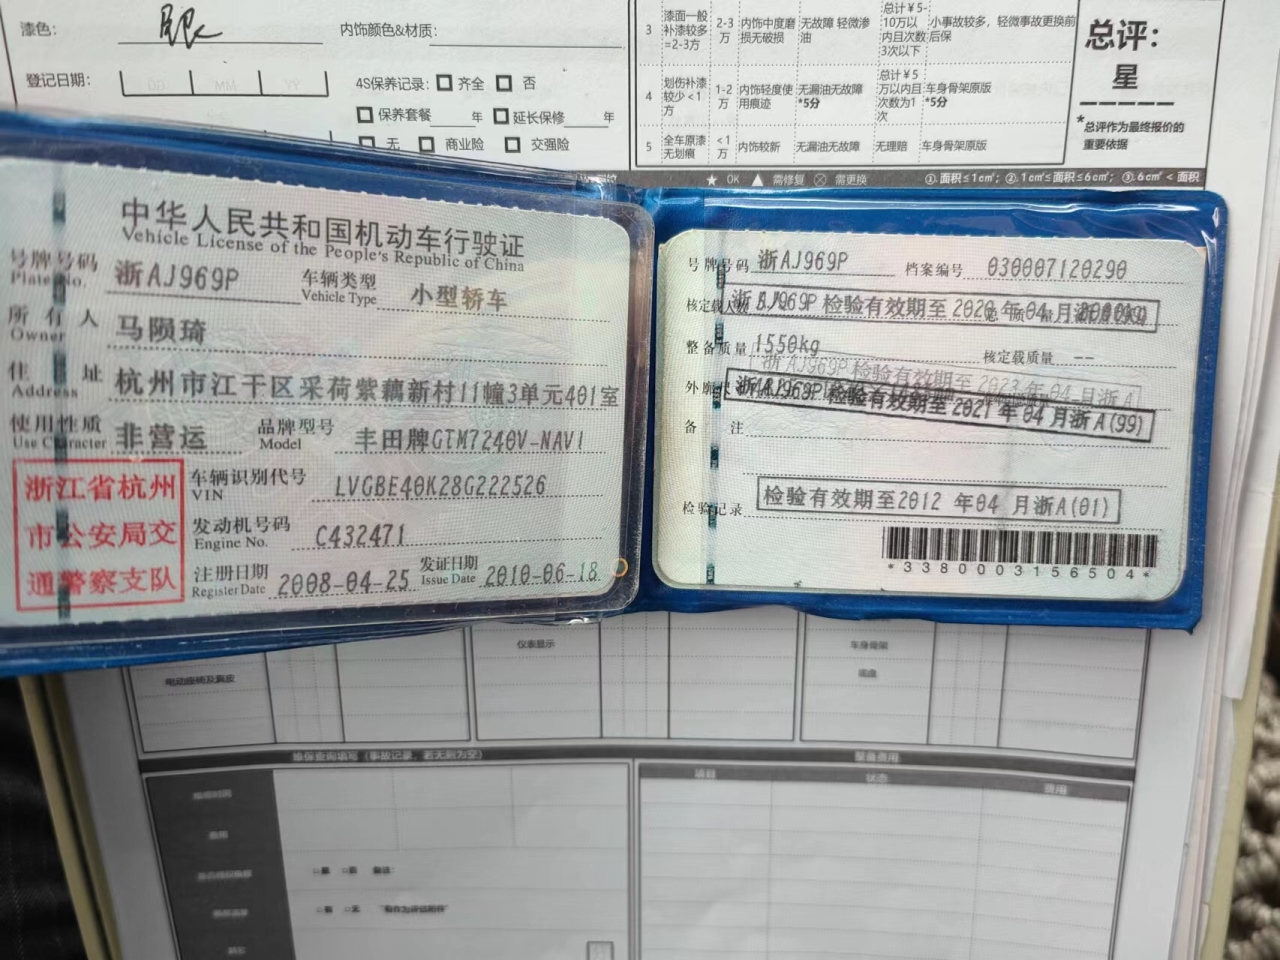 漆色： 银 内饰颜色&材质：
登记日期：
4S保养记录： 齐全 否
保养套餐 年 延长保修 年
无 商业险 交强险
3 漆面一般补漆较多=2-3方 2-3万 内饰中度磨损无破损 无故障 轻微渗油 总计￥5-10万以内且次数3次以下 小事故较多，轻微事故更换前后保
4 划伤补漆较少＜1方 1-2万 内饰轻度使用痕迹 无漏油无故障 *5分 总计￥5万以内且次数为1次 车身骨架原版 *5分
5 全车原漆无划痕 ＜1万 内饰较新 无漏油无故障 无理赔 车身骨架原版
总评：
星
*总评作为最终报价的重要依据
★ OK ▲ 需修复 需更换 ①.面积≤1c㎡; ②.1c㎡≤面积≤6c㎡; ③.6c㎡＜面积
中华人民共和国机动车行驶证
Vehicle License of the People's Republic of China
号牌号码 浙AJ969P 车辆类型 小型轿车
Plate No. Vehicle Type
所有人 马陨琦
Owner
住址 杭州市江干区采荷紫藕新村11幢3单元401室
Address
使用性质 非营运 品牌型号 丰田牌GTM7240V-NAVI
Use Character Model
浙江省杭州市公安局交通警察支队
车辆识别代号 LVGBE40K28G222526
VIN
发动机号码 C432471
Engine No.
注册日期 2008-04-25 发证日期 2010-06-18
Register Date Issue Date
号牌号码 浙AJ969P 档案编号 030007120290
核定载人数
浙AJ969P 检验有效期至2020年04月
整备质量 1550kg 核定载质量 --
浙AJ969P 检验有效期至2023年04月浙A
浙AJ969P 检验有效期至2021年04月浙A(99)
备注
检验记录 检验有效期至2012 年04 月浙A(01)
*3380003156504*
仪表显示 车身骨架
电动座椅及真皮 底盘
维保查询填写（事故记录，若无则为空） 整备费用
项目 状态 费用